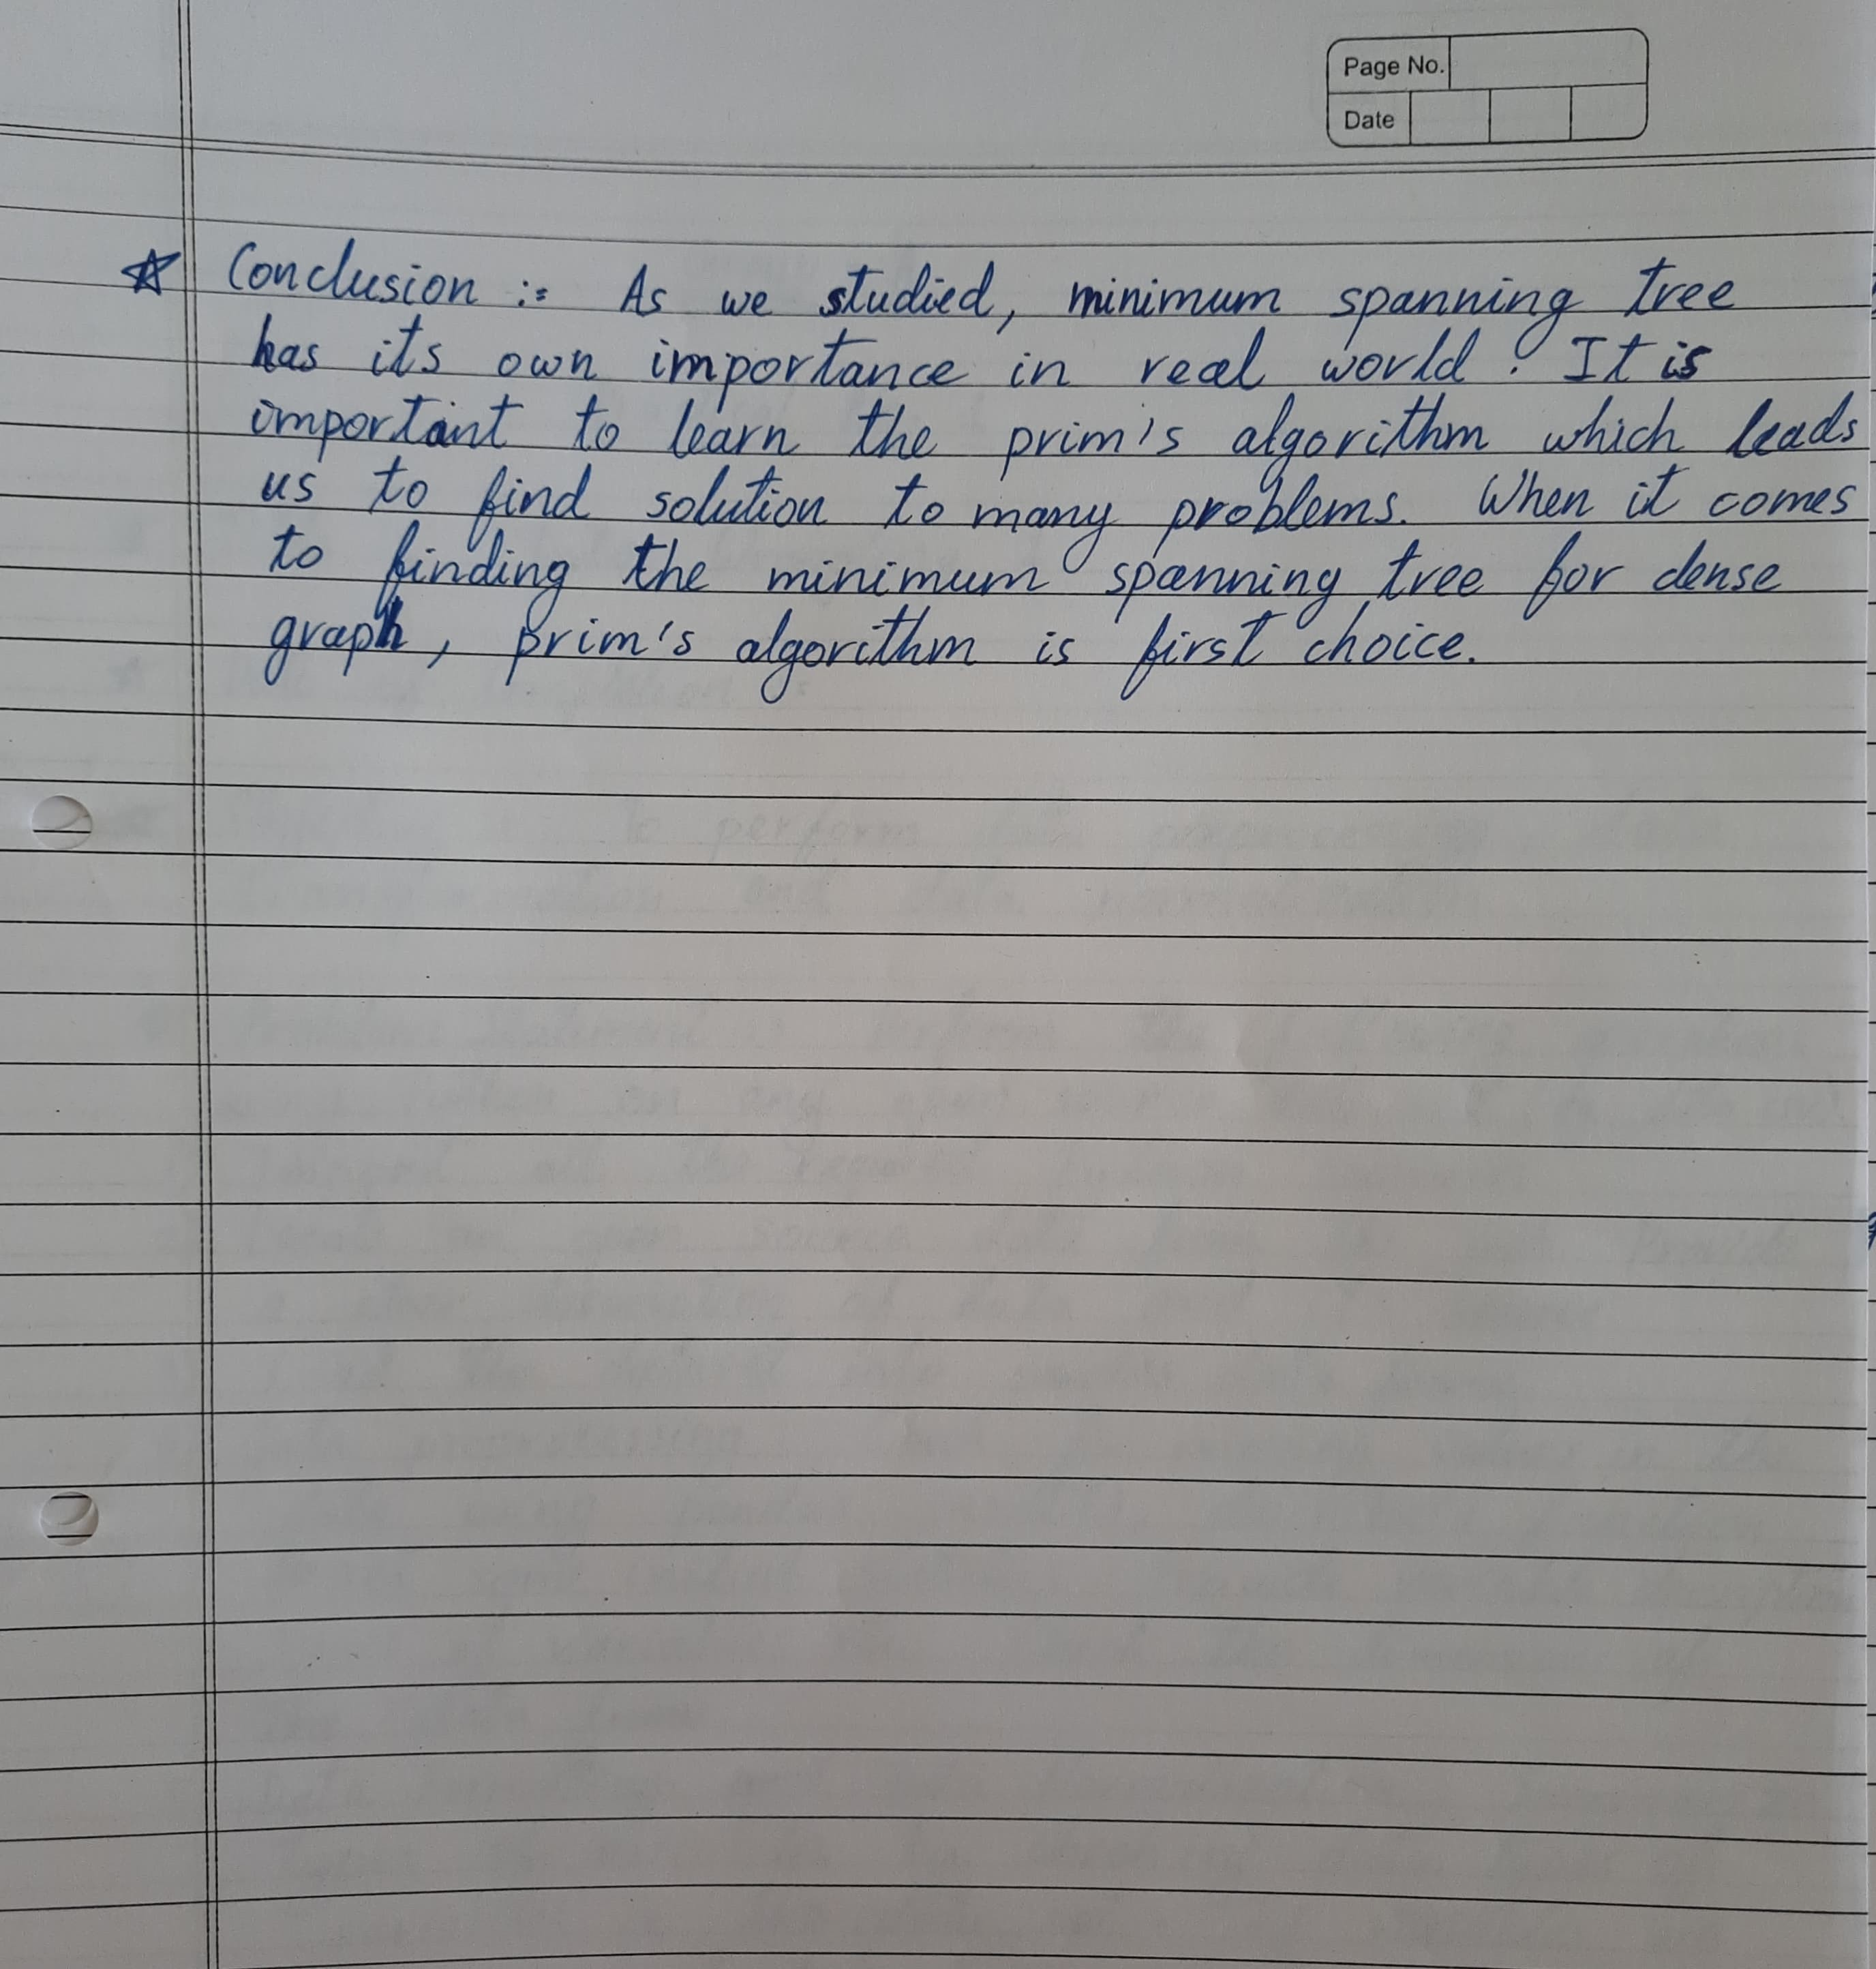 Page No.
Date
☆ Conclusion := As we studied, minimum spanning tree
has its own importance in real world. It is
important to learn the prim's algorithm which leads
us to find solution to many problems. When it comes
to finding the minimum spanning tree for dense
graph, prim's algorithm is first choice.